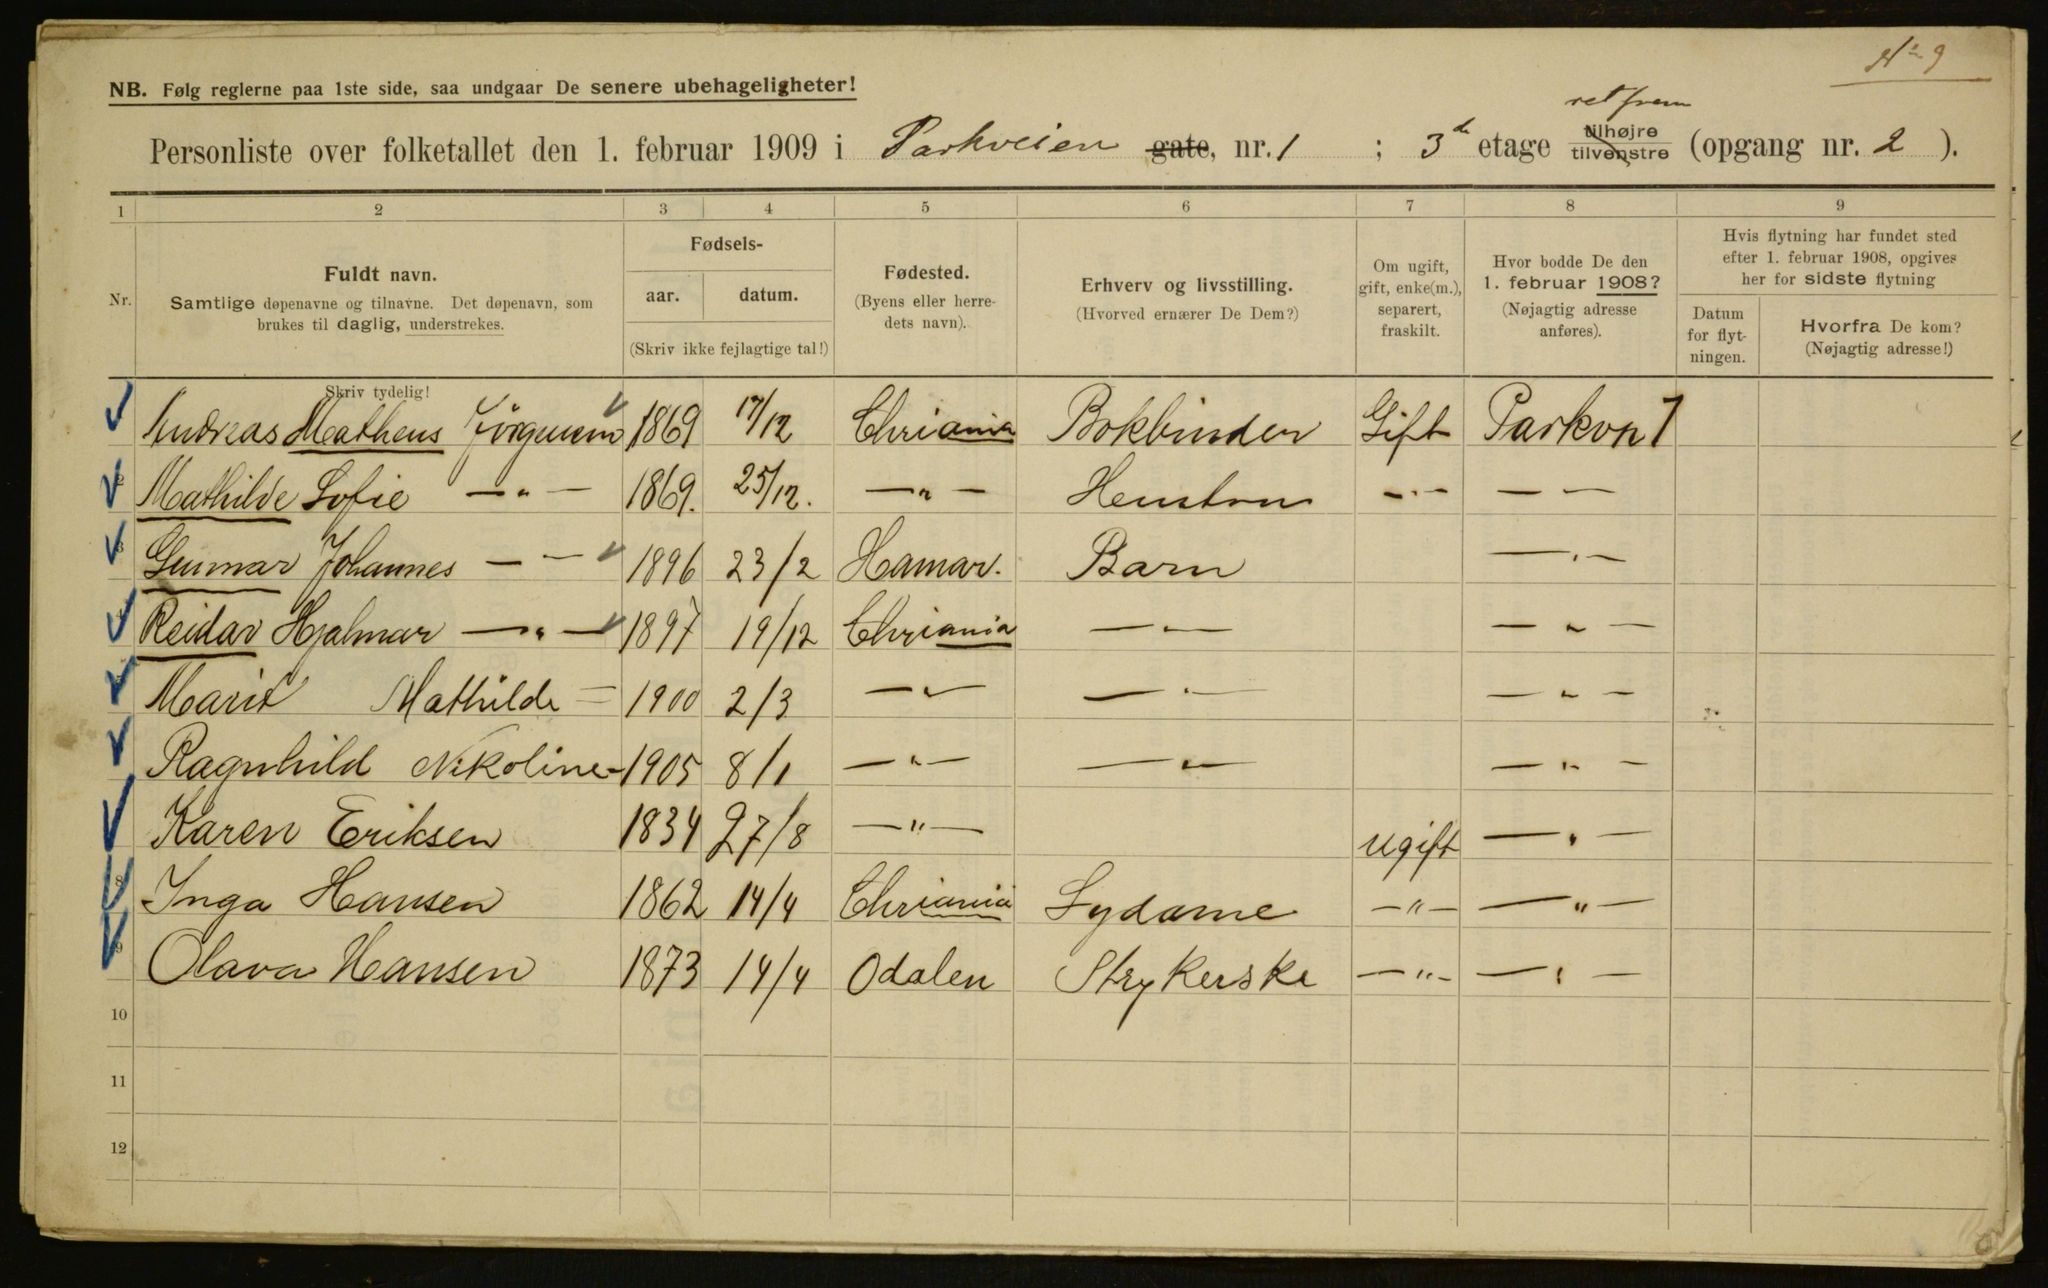 No 9
NB. Følg reglerne paa 1ste side, saa undgaar De senere ubehageligheter!
ret frem
Personliste over folketallet den 1. februar 1909 i Parkveien gate, nr. 1 ; 3d etage tilhøjre tilvenstre (opgang nr. 2 ).
1 2 3 4 5 6 7 8 9
Nr.
Fuldt navn.
Samtlige døpenavne og tilnavne. Det døpenavn, som
brukes til daglig, understrekes.
Fødsels-
aar. datum.
(Skriv ikke fejlagtige tal!)
Fødested.
(Byens eller herre-
dets navn).
Erhverv og livsstilling.
(Hvorved ernærer De Dem?)
Om ugift,
gift, enke(m.),
separert,
fraskilt.
Hvor bodde De den
1. februar 1908?
(Nøjagtig adresse
anføres).
Hvis flytning har fundet sted
efter 1. februar 1908, opgives
her for sidste flytning
Datum
for flyt-
ningen.
Hvorfra De kom?
(Nøjagtig adresse!)
Skriv tydelig!
Andreas Matheus Jörgensen 1869 17/12 Chriania Bokbinder Gift Parkvn 1
2 Mathilde Sofie —"— 1869. 25/12. —"— Hustru —"— — —
3 Gunnar Johannes — — 1896 23/2 Hamar. Barn —"—
4 Reidar Hjalmar —"— 1897 19/12 Chriania —"— —"—
5 Marit Mathilde — 1900 2/3 —"— —"— —"—
Ragnhild Nikoline - 1905 8/1 —"— —"— —"—
Karen Eriksen 1834 27/8 —"— ugift —"—
8 Inga Hansen 1862 14/4 Chriania Sydame —"— —"—
9 Olava Hansen 1873 14/4 Odalen Strykerske —"— —"—
10
11
12